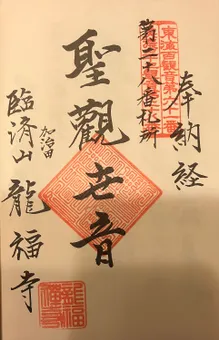 奉納経
東海百観音第六十一番
第二十八番札所
聖觀世音
加治田
臨済山 龍福寺
龍福寺